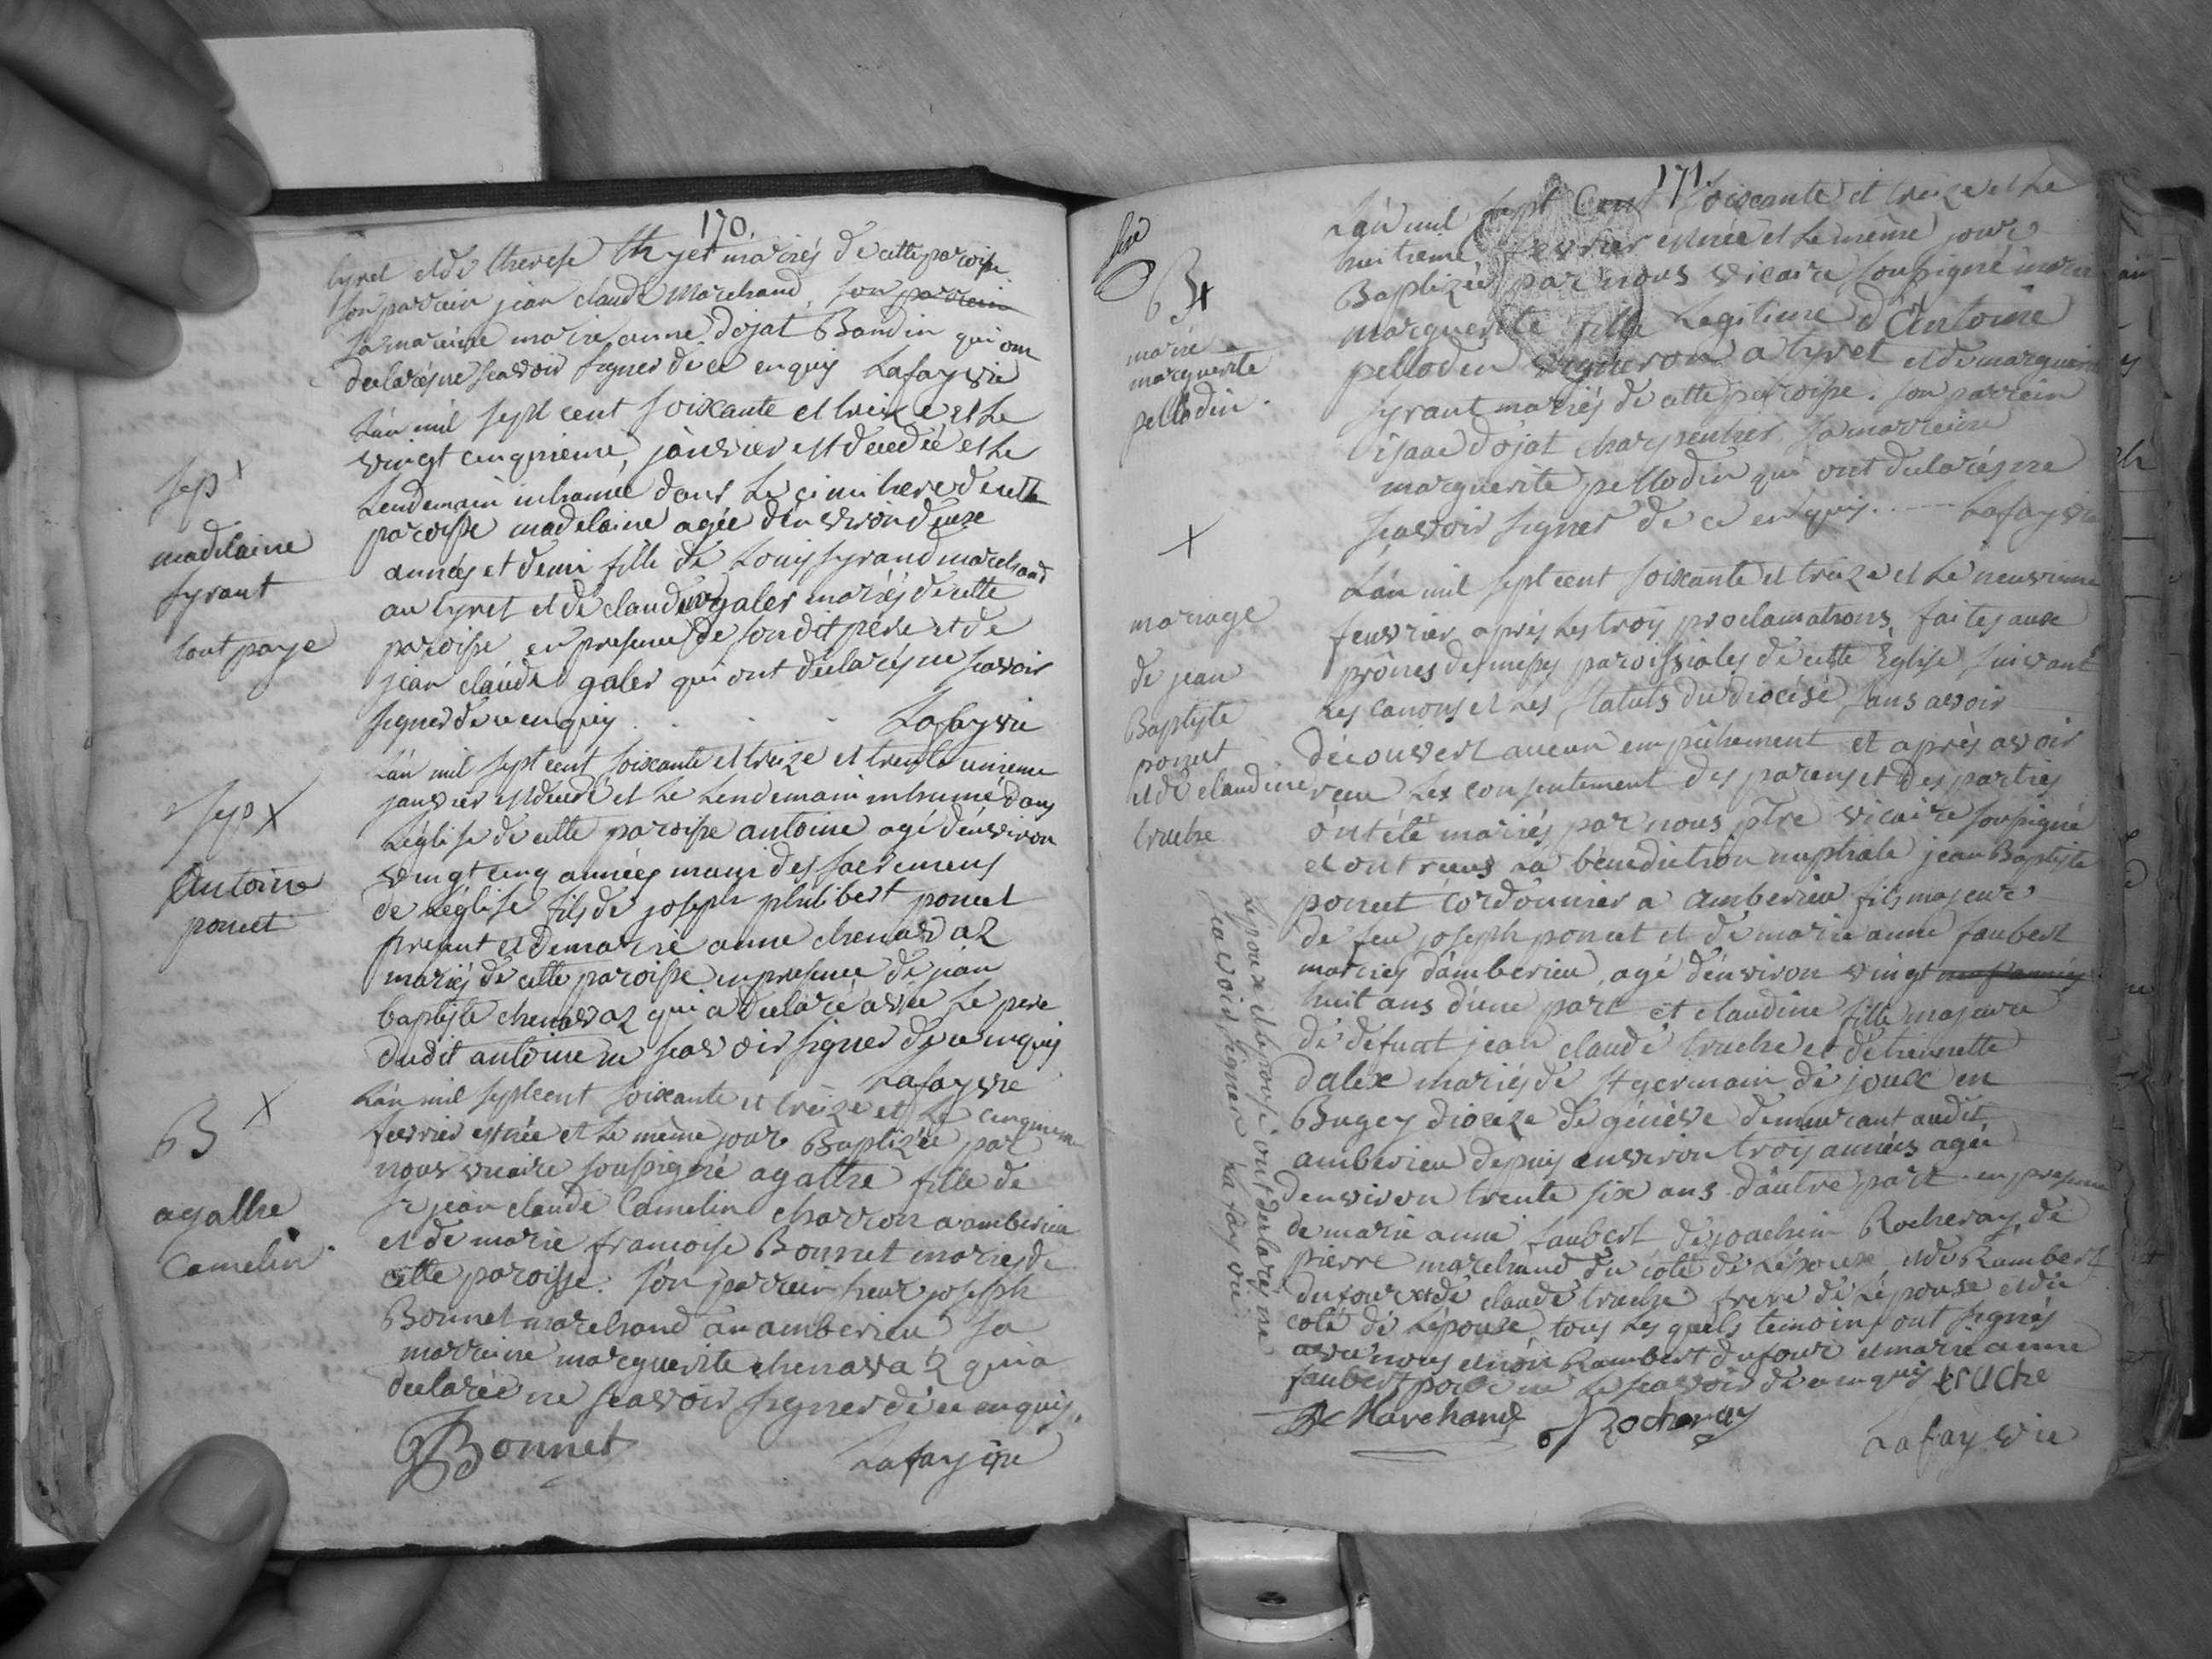 170.
tyret et de therese thyet mariés de cette paroisse
son parrein jean claude Marchand, son parrein
sa mareine marie anne dojat Bandin qui ont
declarés ne scavoir signer de ce enquis Lafayvie
L'an mil sept cent soixante et treize et le
vingt cinquieme janvier est decedée et le
Lendemain inhumée dans le cimitiere de cette
paroisse madelaine agée d'environ deux
années et demi fille de Louis syrand marchand
au tyret et de claudine galer mariés de cette
paroisse en presence de son dit pére et de
jean claude galer qui ont déclarés ne scavoir
signer de ce enquis . . . . Lafayvie
sep x
madelaine
syrant
tout paye
L'an mil sept cent soixante et treize et trente unieme
janvier est decedé et le Lendemain inhumé dans
L'église de cette paroisse antoine agé d'environ
vingt cinq années muni des sacremens
de L'église fils de joseph philibert poncet
present et de marie anne chenavaz
mariés de cette paroisse en presence de jean
baptiste chenavaz qui a declaré avec le pere
dudit antoine ne scavoir signer de ce enquis
Lafayvie
sep x
Antoine
poncet
L'an mil sept cent soixante et treize et le cinquieme
fevrier est née et le même jour Baptizée par
nous vicaire soussigné agathe fille de
sr jean claude Camelin charron a amberieu
et de marie francoise Bonnet mariés de
cette paroisse. son parrein sieur joseph
Bonnet marchand a amberieu sa
marreine marguerite chenavaz qui a
declarée ne scavoir signer de ce enquis,
JBonnet Lafayvie
B x
agathe
Camelin
171.
L'an mil sept Cent soixante et treize et le
huitieme fevrier est née et le même jour
Baptizée par nous vicaire soussigné marie
marguerite fille Legitime d'Antoine
pellodin vigneron a tyret et de marguerite
syrant mariés de cette paroisse. son parrein
isaac dojat charpentier sa marreine
marguerite pellodin qui ont declarés ne
scavoir signer de ce enquis ..... Lafayvie
B x
marie
marguerite
pellodin.
x
L'an mil sept cent soixante et treize et le neuvieme
fevrier après les trois proclamations faites aux
prônes des messes paroissiales de cette Eglise suivant
les canons et les statuts du diocése sans avoir
découvert aucun empêchement et après avoir
reçu les consentement des parens et des parties
ont été mariés par nous ptre vicaire soussigné
et ont reçus la bénédiction nuptiale jean Baptiste
poncet cordonnier a amberieu fils majeur
de feu joseph poncet et de marie anne faubert
mariés d'amberieu, agé d'environ vingt neuf années
huit ans d'une part et claudine fille majeure
de defunt jean claude truche et d'hennette
dalex mariés de st germain de joux en
Bugey dioceze de génève demeurant audit
amberieu depuis environ trois années agée
d'environ trente six ans d'autre part en presence
de marie anne faubert de joachim Rocheray, de
pierre marchand du coté de L'époux, et de Rambert
dufour et de claude truche frere de L'épouse et du
coté de L'épouse, tous les quels temoins ont signés
avec nous et non Rambert dufour et marie anne
faubert pour ne le scavoir de ce enquis truche
P Marchand Rocheray
Lafayvie
mariage
de jean
Baptiste
poncet
et de claudine
truche
L'époux et L'épouse ont declarés ne
scavoir signer Lafayvie